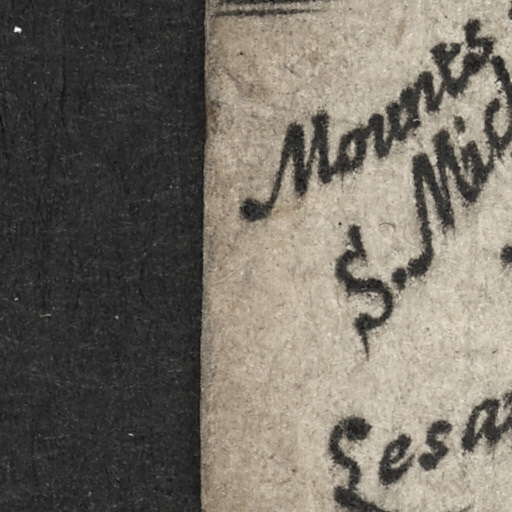 Mounts
S. Mic
Gesa